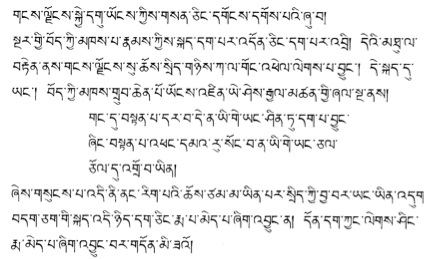 གངས་ལྗོངས་སྐྱེ་དགུ་ཡོངས་ཀྱིས་གསན་ཅིང་དགོངས་དགོས་པའི་ཞུ་བ།
སྔར་གྱི་བོད་ཀྱི་མཁས་པ་རྣམས་ཀྱིས་སྐད་དག་པར་འདོན་ཅིང་དག་པར་འབྲི། དེའི་མཐུ་ལ་
བརྟེན་ནས་གངས་ལྗོངས་སུ་ཆོས་སྲིད་གཉིས་ཀ་ལ་གོང་འཕེལ་ལེགས་པ་བྱུང་། དེ་སྐད་དུ་
ཡང་། བོད་ཀྱི་མཁས་གྲུབ་ཆེན་པོ་ཡོངས་འཛིན་ཡེ་ཤེས་རྒྱལ་མཚན་གྱི་ཞལ་སྔ་ནས།
གང་དུ་བསྟན་པ་དར་བ་དེ་ན་ཡི་གེ་ཡང་ཤིན་ཏུ་དག་པ་བྱུང་
ཞིང་བསྟན་པ་འཕང་དམའ་རུ་སོང་བ་ན་ཡི་གེ་ཡང་ཅལ་
ཅོལ་དུ་འགྲོ་བ་ཡིན།
ཞེས་གསུངས་པ་འདི་ནི་ནང་རིག་པའི་ཆོས་ཙམ་མ་ཡིན་པར་སྲིད་ཀྱི་བྱ་བར་ཡང་ཡིན་འདུག
བདག་ཅག་གི་སྐད་འདི་ཉིད་དག་ཅིང་རྨ་པ་མེད་པ་ཞིག་འབྱུང་ན། དོན་དག་ཀྱང་ལེགས་ཤིང་
རྨ་མེད་པ་ཞིག་འབྱུང་བར་གདོན་མི་ཟའོ།